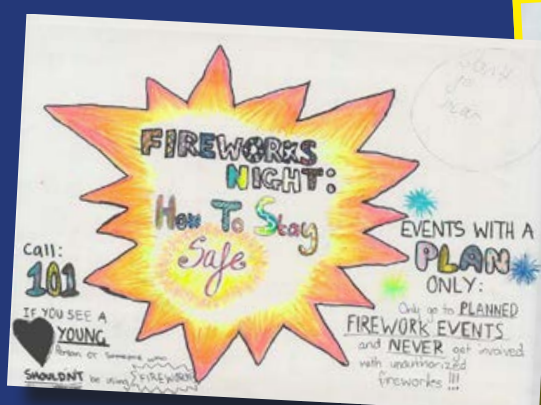 FIREWORKS
NIGHT:
How To Stay
Safe
Call:
101
IF YOU SEE A
YOUNG
Person or someone who
SHOULDNT be using FIREWORKS
EVENTS WITH A
PLAN
ONLY:
Only go to PLANNED
FIREWORK EVENTS
and NEVER get involved
with unauthorized
fireworks !!!